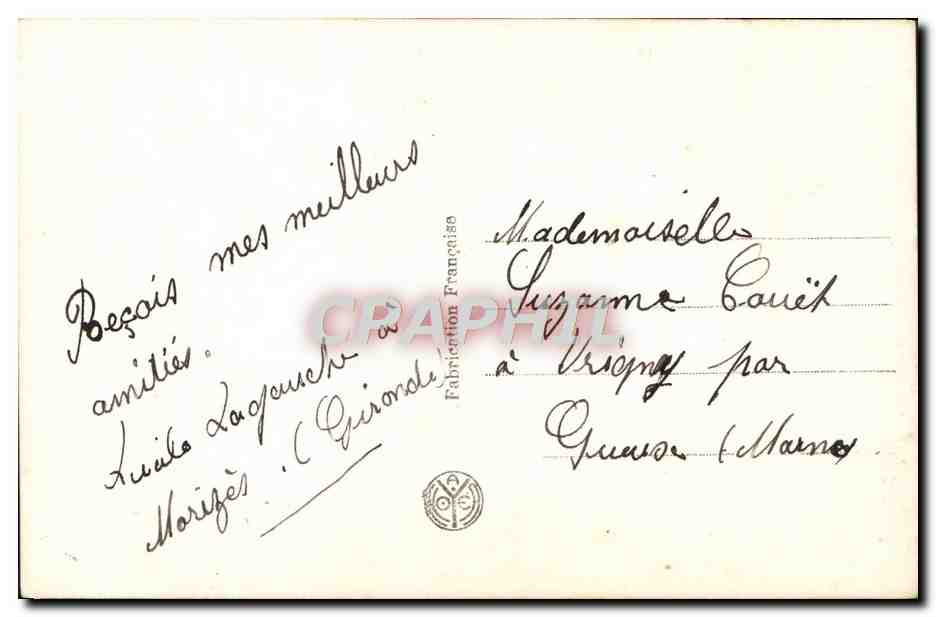 Reçois mes meilleurs
amitiés.
Lagausche à
Morizès. (Gironde)
Fabrication Française
CRAPHIL
Mademoiselle
Suzanne Couët
à Vrigny par
Gueux (Marne)